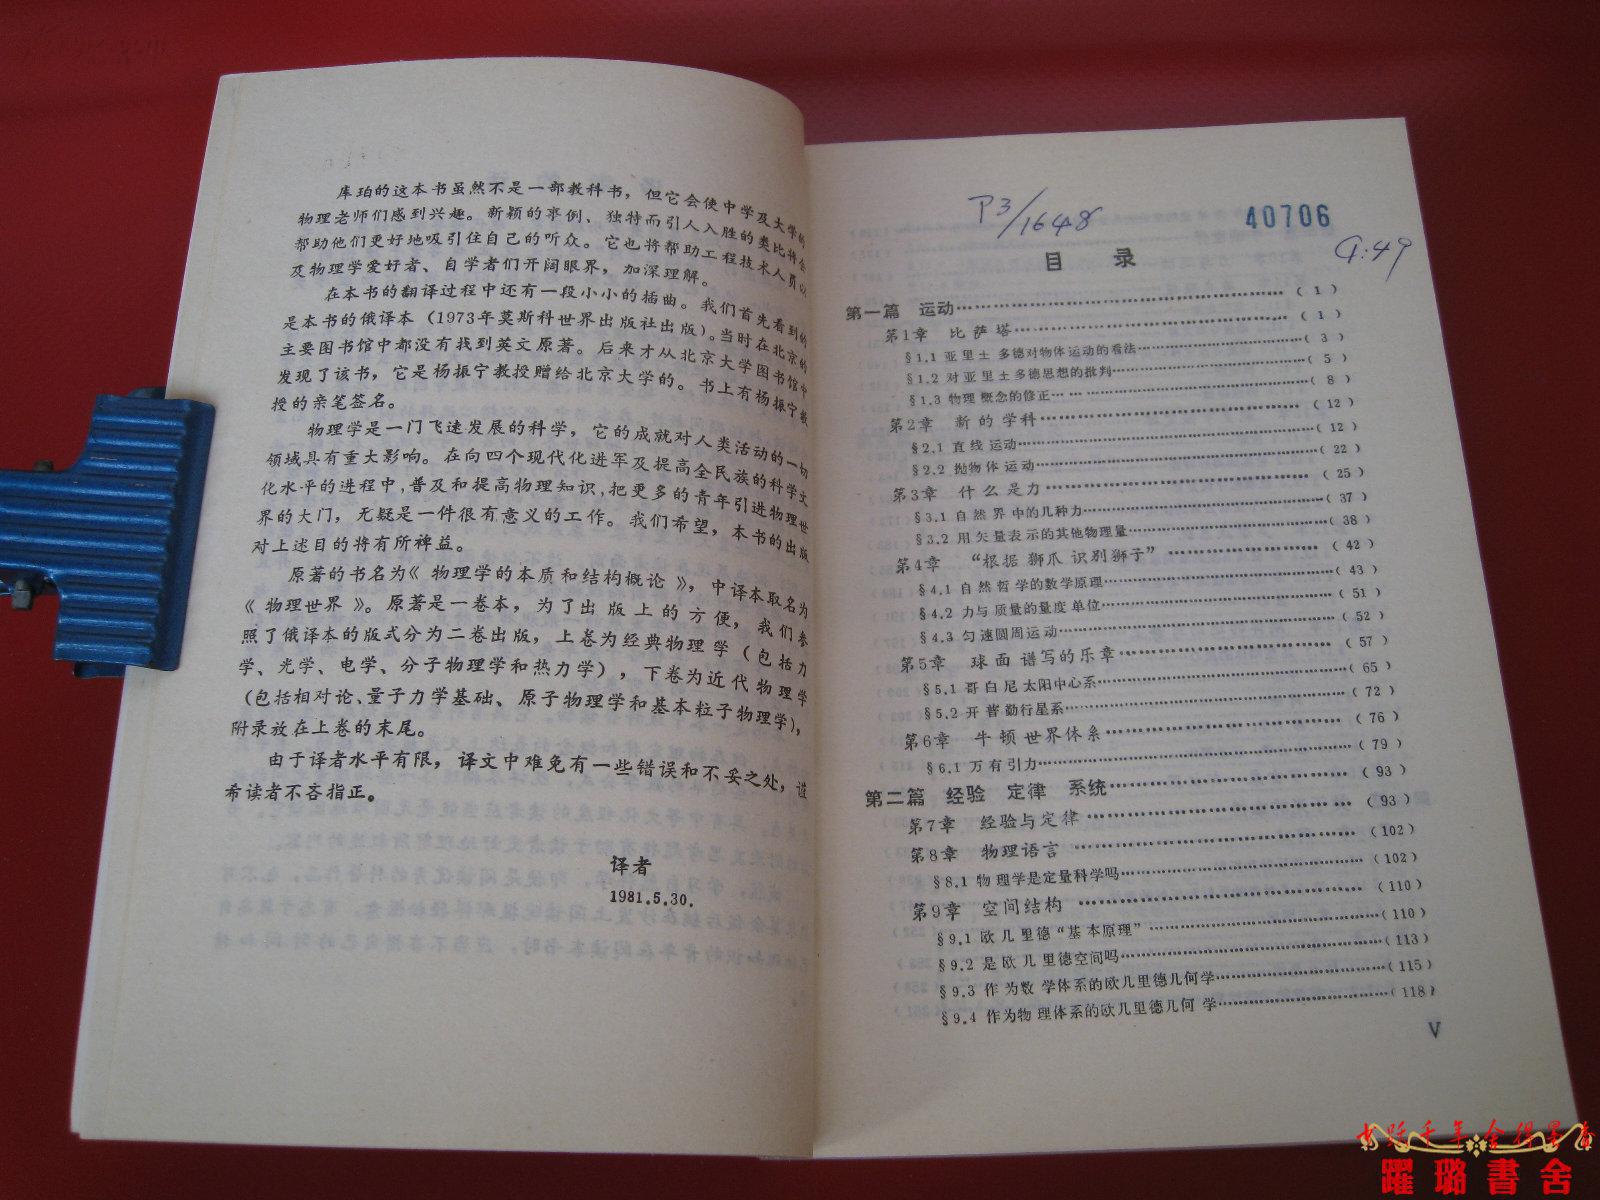 库珀的这本书虽然不是一部教科书，但它会使中学及大学的
物理老师们感到兴趣。新颖的事例、独特而引人入胜的类比将会
帮助他们更好地吸引住自己的听众。它也将帮助工程技术人员以
及物理学爱好者、自学者们开阔眼界，加深理解。
在本书的翻译过程中还有一段小小的插曲。我们首先看到的
是本书的俄译本（1973年莫斯科世界出版社出版）。当时在北京的
主要图书馆中都没有找到英文原著。后来才从北京大学图书馆中
发现了该书，它是杨振宁教授赠给北京大学的。书上有杨振宁教
授的亲笔签名。
物理学是一门飞速发展的科学，它的成就对人类活动的一切
领域具有重大影响。在向四个现代化进军及提高全民族的科学文
化水平的进程中，普及和提高物理知识，把更多的青年引进物理世
界的大门，无疑是一件很有意义的工作。我们希望，本书的出版
对上述目的将有所裨益。
原著的书名为《物理学的本质和结构概论》，中译本取名为
《物理世界》。原著是一卷本，为了出版上的方便，我们参
照了俄译本的版式分为二卷出版，上卷为经典物理学（包括力
学、光学、电学、分子物理学和热力学），下卷为近代物理学
（包括相对论、量子力学基础、原子物理学和基本粒子物理学），
附录放在上卷的末尾。
由于译者水平有限，译文中难免有一些错误和不妥之处，谨
希读者不吝指正。
译者
1981.5.30.
P3/1648
40706
目 录
第一篇 运动……（1）
第1章 比萨塔……（1）
§1.1 亚里士多德对物体运动的看法……（3）
§1.2 对亚里士多德思想的批判……（5）
§1.3 物理概念的修正……（8）
第2章 新的学科……（12）
§2.1 直线运动……（12）
§2.2 抛物体运动……（22）
第3章 什么是力……（25）
§3.1 自然界中的几种力……（37）
§3.2 用矢量表示的其他物理量……（38）
第4章 “根据狮爪识别狮子”……（42）
§4.1 自然哲学的数学原理……（43）
§4.2 力与质量的量度单位……（51）
§4.3 匀速圆周运动……（52）
第5章 球面谱写的乐章……（57）
§5.1 哥白尼太阳中心系……（65）
§5.2 开普勒行星系……（72）
第6章 牛顿世界体系……（76）
§6.1 万有引力……（79）
第二篇 经验 定律 系统……（93）
第7章 经验与定律……（93）
第8章 物理语言……（102）
§8.1 物理学是定量科学吗……（102）
第9章 空间结构……（110）
§9.1 欧几里德“基本原理”……（110）
§9.2 是欧几里德空间吗……（113）
§9.3 作为数学体系的欧几里德几何学……（115）
§9.4 作为物理体系的欧几里德几何学……（118）
V
躍璐書舍